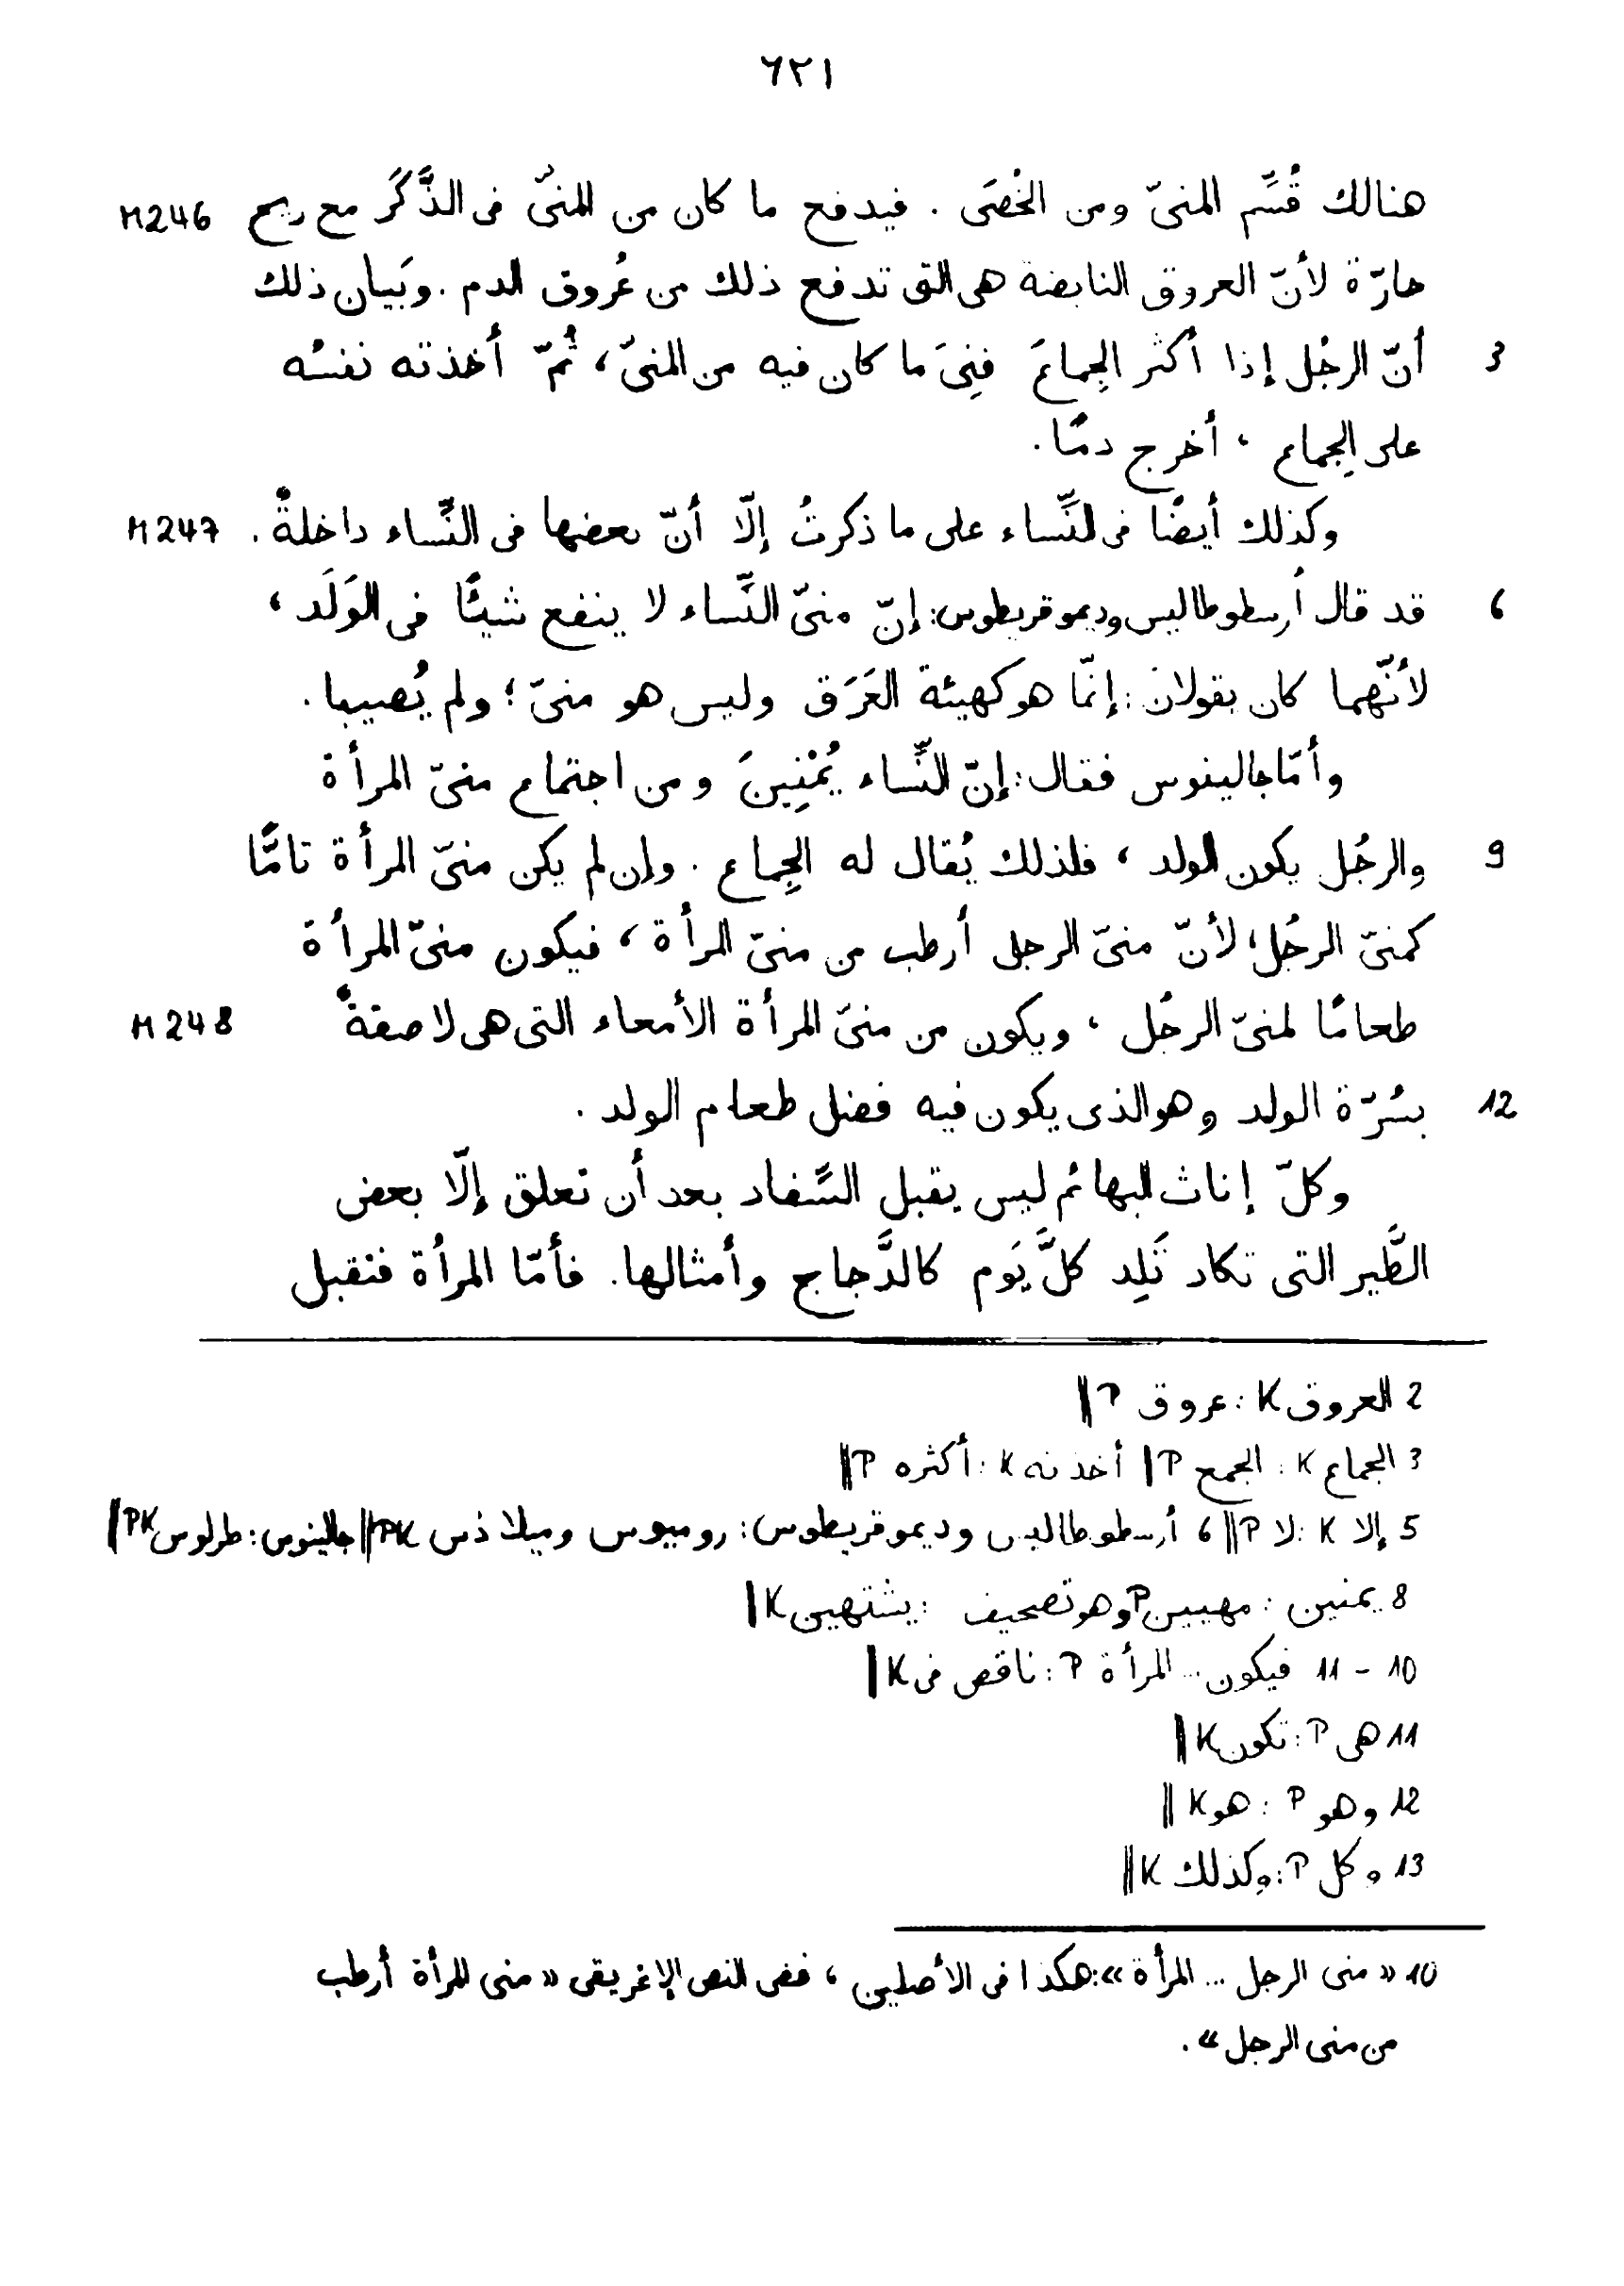 ٦٢١
هنالك قُسِّم المنىّ ومن الخُصَى . فيدفع ما كان من المنىّ فى الذَّكَر مع ريح M246
حارّة لأنّ العروق النابضة هى التى تدفع ذلك من عُروق الدم . وبَيان ذلك
3 أنّ الرجُل إذا أكثر الجِماعَ فنِىَ ما كان فيه من المنىّ ، ثُمّ أخذته نفسُه
على الجِماع ، أخرج دمًا .
وكذلك أيضًا فى النِّساء على ما ذكرتُ إلّا أنّ بعضها فى النِّساء داخلةٌ . M247
6 قد قال أرسطوطاليس وديموقريطوس : إنّ منىّ النِّساء لا ينفع شيئًا فى الوَلَد ،
لأنّهما كان يقولان : إنّما هو كهيئة العَرَق وليس هو منىّ ؛ ولم يُصيبا .
وأمّا جالينوس فقال : إنّ النِّساء يُمْنِينَ ومن اجتماع منىّ المرأة
9 والرجُل يكون الولد ، فلذلك يُقال له الجِماع . وإن لم يكن منىّ المرأة تامًّا
كمنىّ الرجُل ، لأنّ منىّ الرجل أرطب من منىّ المرأة ، فيكون منىّ المرأة
طعامًا لمنىّ الرجُل ، ويكون من منىّ المرأة الأمعاء التى هى لاصقةٌ M248
12 بسُرّة الولد وهو الذى يكون فيه فضل طعام الولد .
وكلّ إناث البهائم ليس يقبل السِّفاد بعد أن تعلق إلّا بعض
الطَّير التى تكاد تَلِد كلَّ يَوم كالدَّجاج وأمثالها . فأمّا المرأة فتقبل
2 العروق K : عروق P ‖
3 الجماع K : الجمع P | أخذته K : أكثره P ‖
5 إلا K : لا P ‖ 6 أرسطوطاليس وديموقريطوس : روميوس وميلاذس PK ‖ جالينوس : طرلوس PK |
8 يمنين : مهيبين P وهو تصحيف : يشتهين K |
10 - 11 فيكون ... المرأة P : ناقص فى K |
11 هى P : تكون K |
12 وهو P : هو K ‖
13 وكل P : وكذلك K ‖
10 « منى الرجل ... المرأة » : هكذا فى الأصلين ، ففى النص الإغريقى « منى المرأة أرطب
من منى الرجل » .